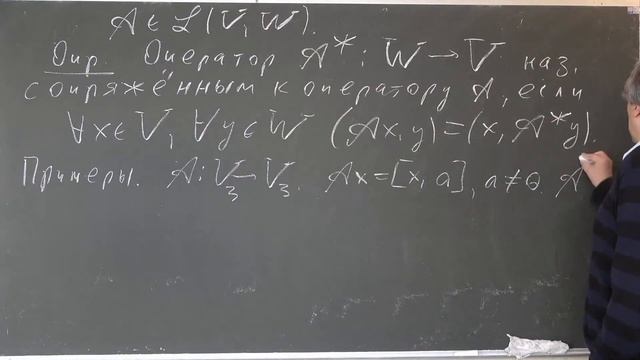 A ∈ L(V, W).
Опр. Оператор A* : W → V наз.
сопряжённым к оператору A, если
∀x ∈ V, ∀y ∈ W (Ax, y) = (x, A*y).
Примеры. A: V₃ → V₃. Ax = [x, a], a ≠ θ. A